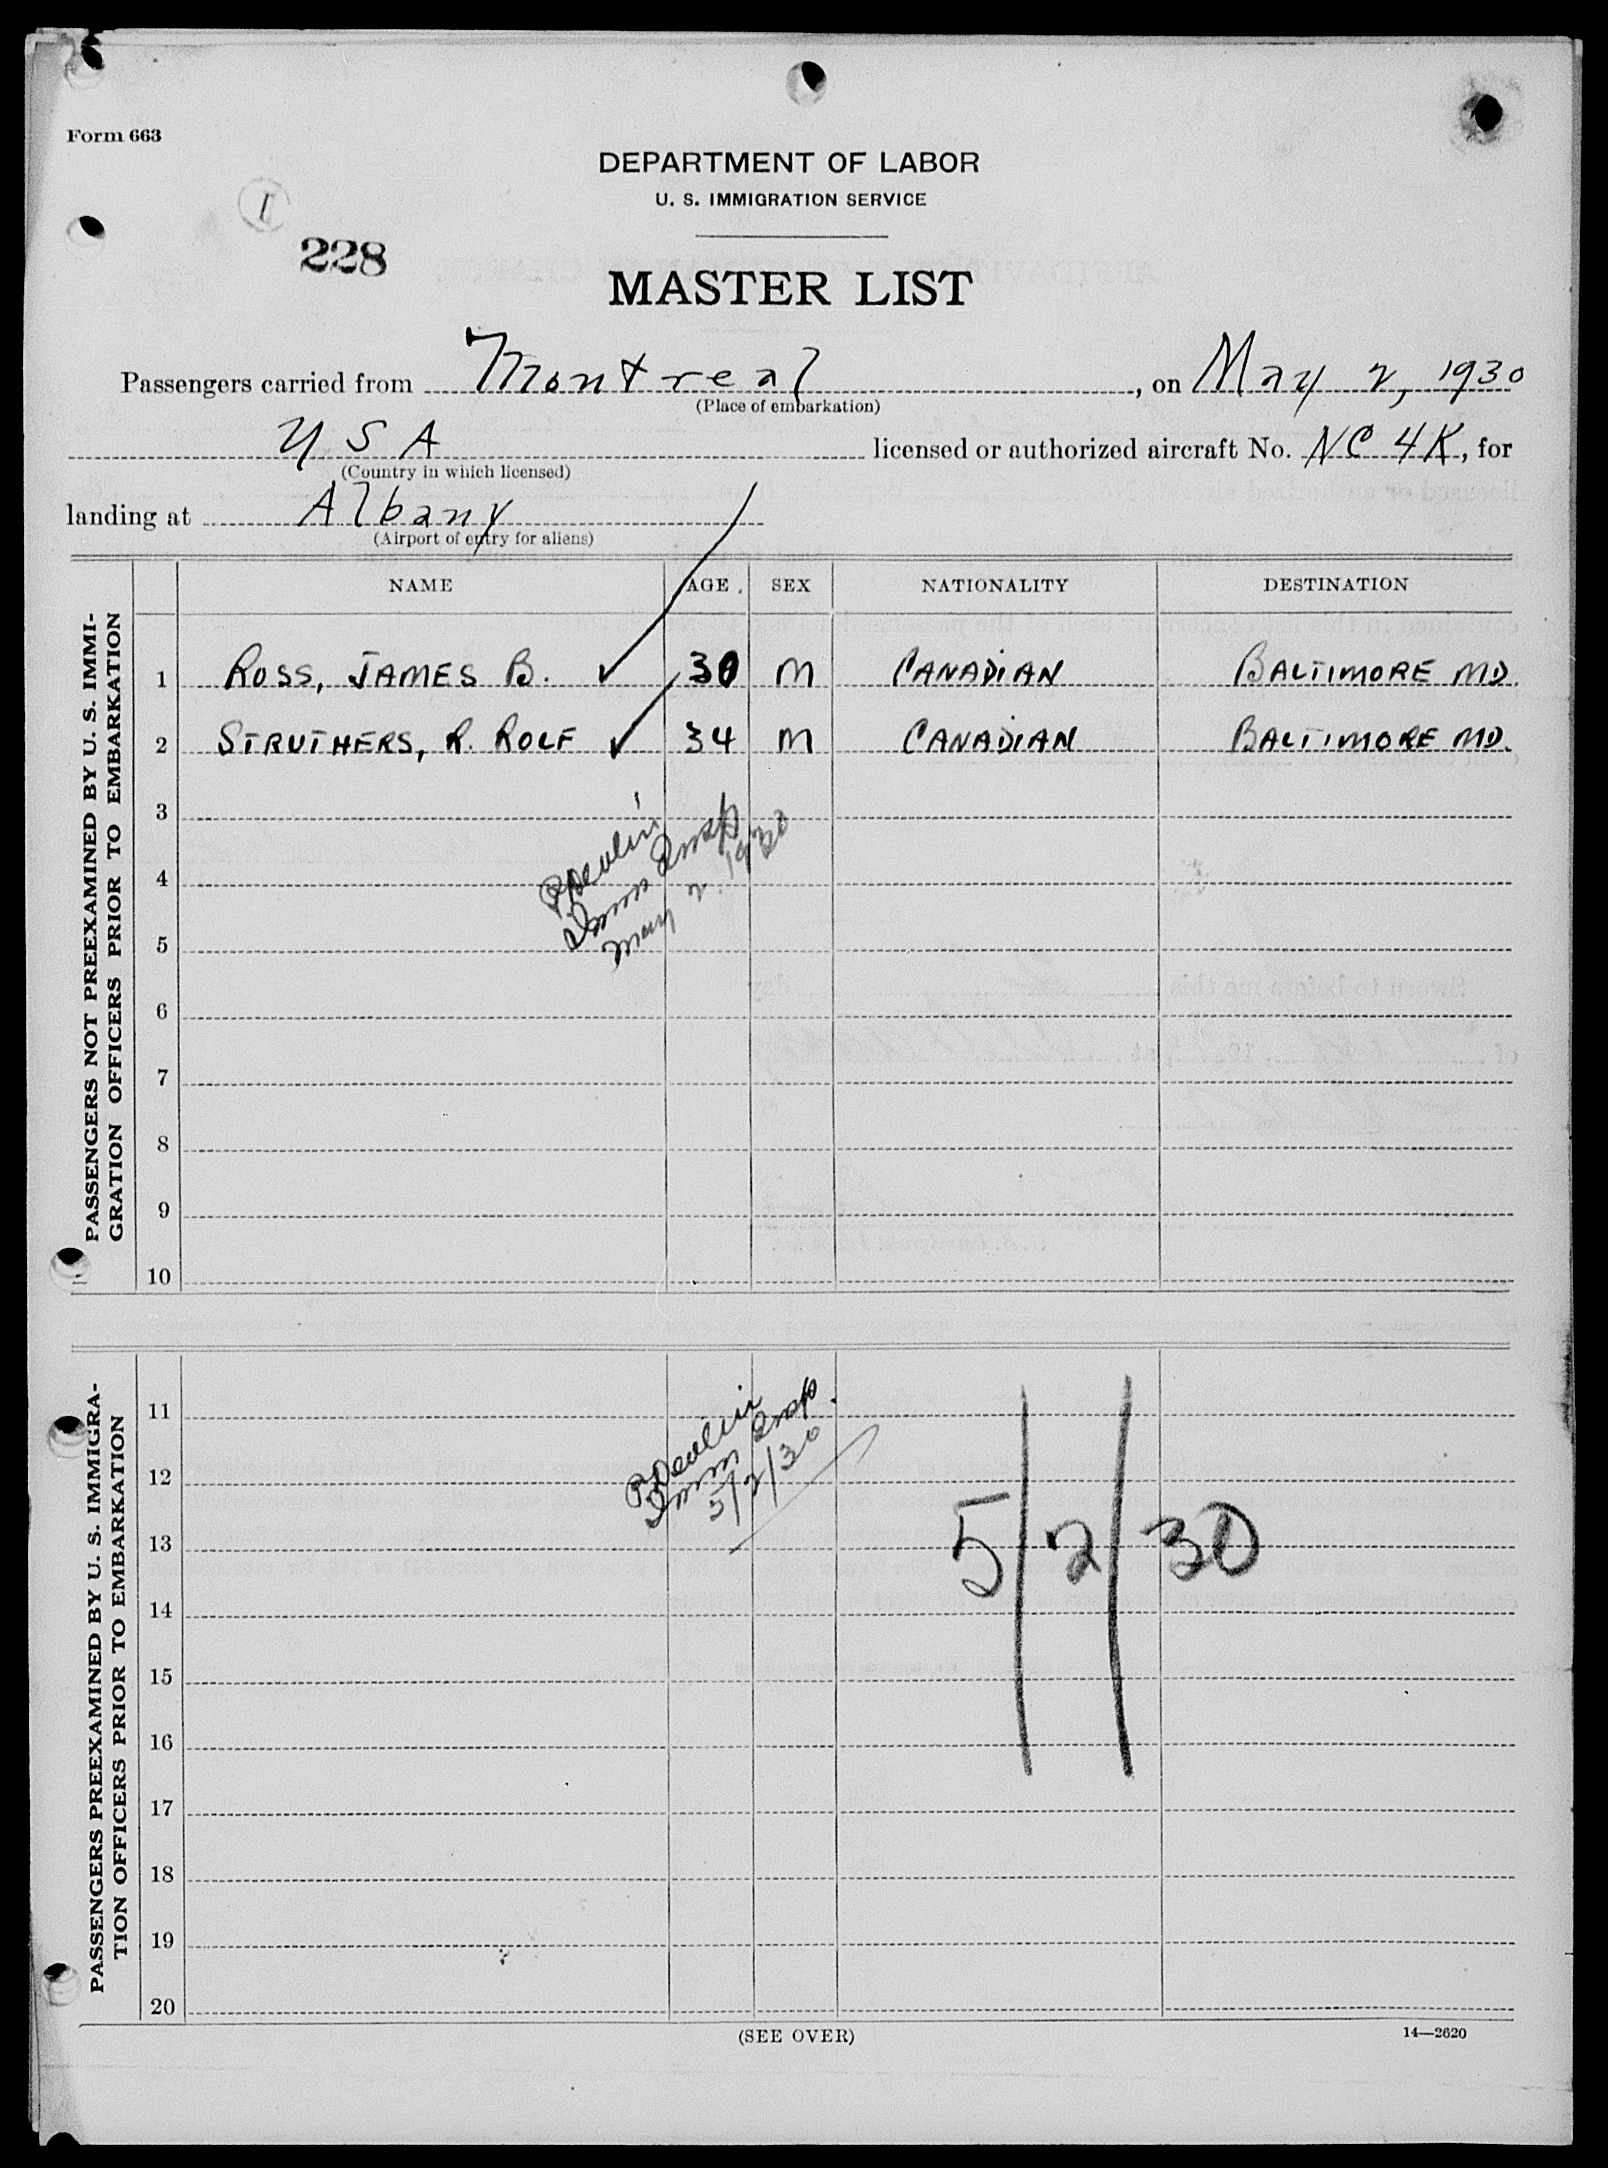 Form 663
DEPARTMENT OF LABOR
U. S. IMMIGRATION SERVICE
I
228
MASTER LIST
Passengers carried from Montreal, on May 2, 1930
(Place of embarkation)
U S A licensed or authorized aircraft No. NC 4K, for
(Country in which licensed)
landing at Albany
(Airport of entry for aliens)
NAME AGE SEX NATIONALITY DESTINATION
PASSENGERS NOT PREEXAMINED BY U. S. IMMI-
GRATION OFFICERS PRIOR TO EMBARKATION
1 ROSS, JAMES B. ✓ 30 M CANADIAN BALTIMORE MD.
2 STRUTHERS, R. ROLF ✓ 34 M CANADIAN BALTIMORE MD.
3
4
5
6
7
8
9
10
Devlin
Imm Insp
May 2. 1930
PASSENGERS PREEXAMINED BY U. S. IMMIGRA-
TION OFFICERS PRIOR TO EMBARKATION
11
12
13
14
15
16
17
18
19
20
Devlin
Imm Insp.
5/2/30
5/2/30
(SEE OVER)
14—2620